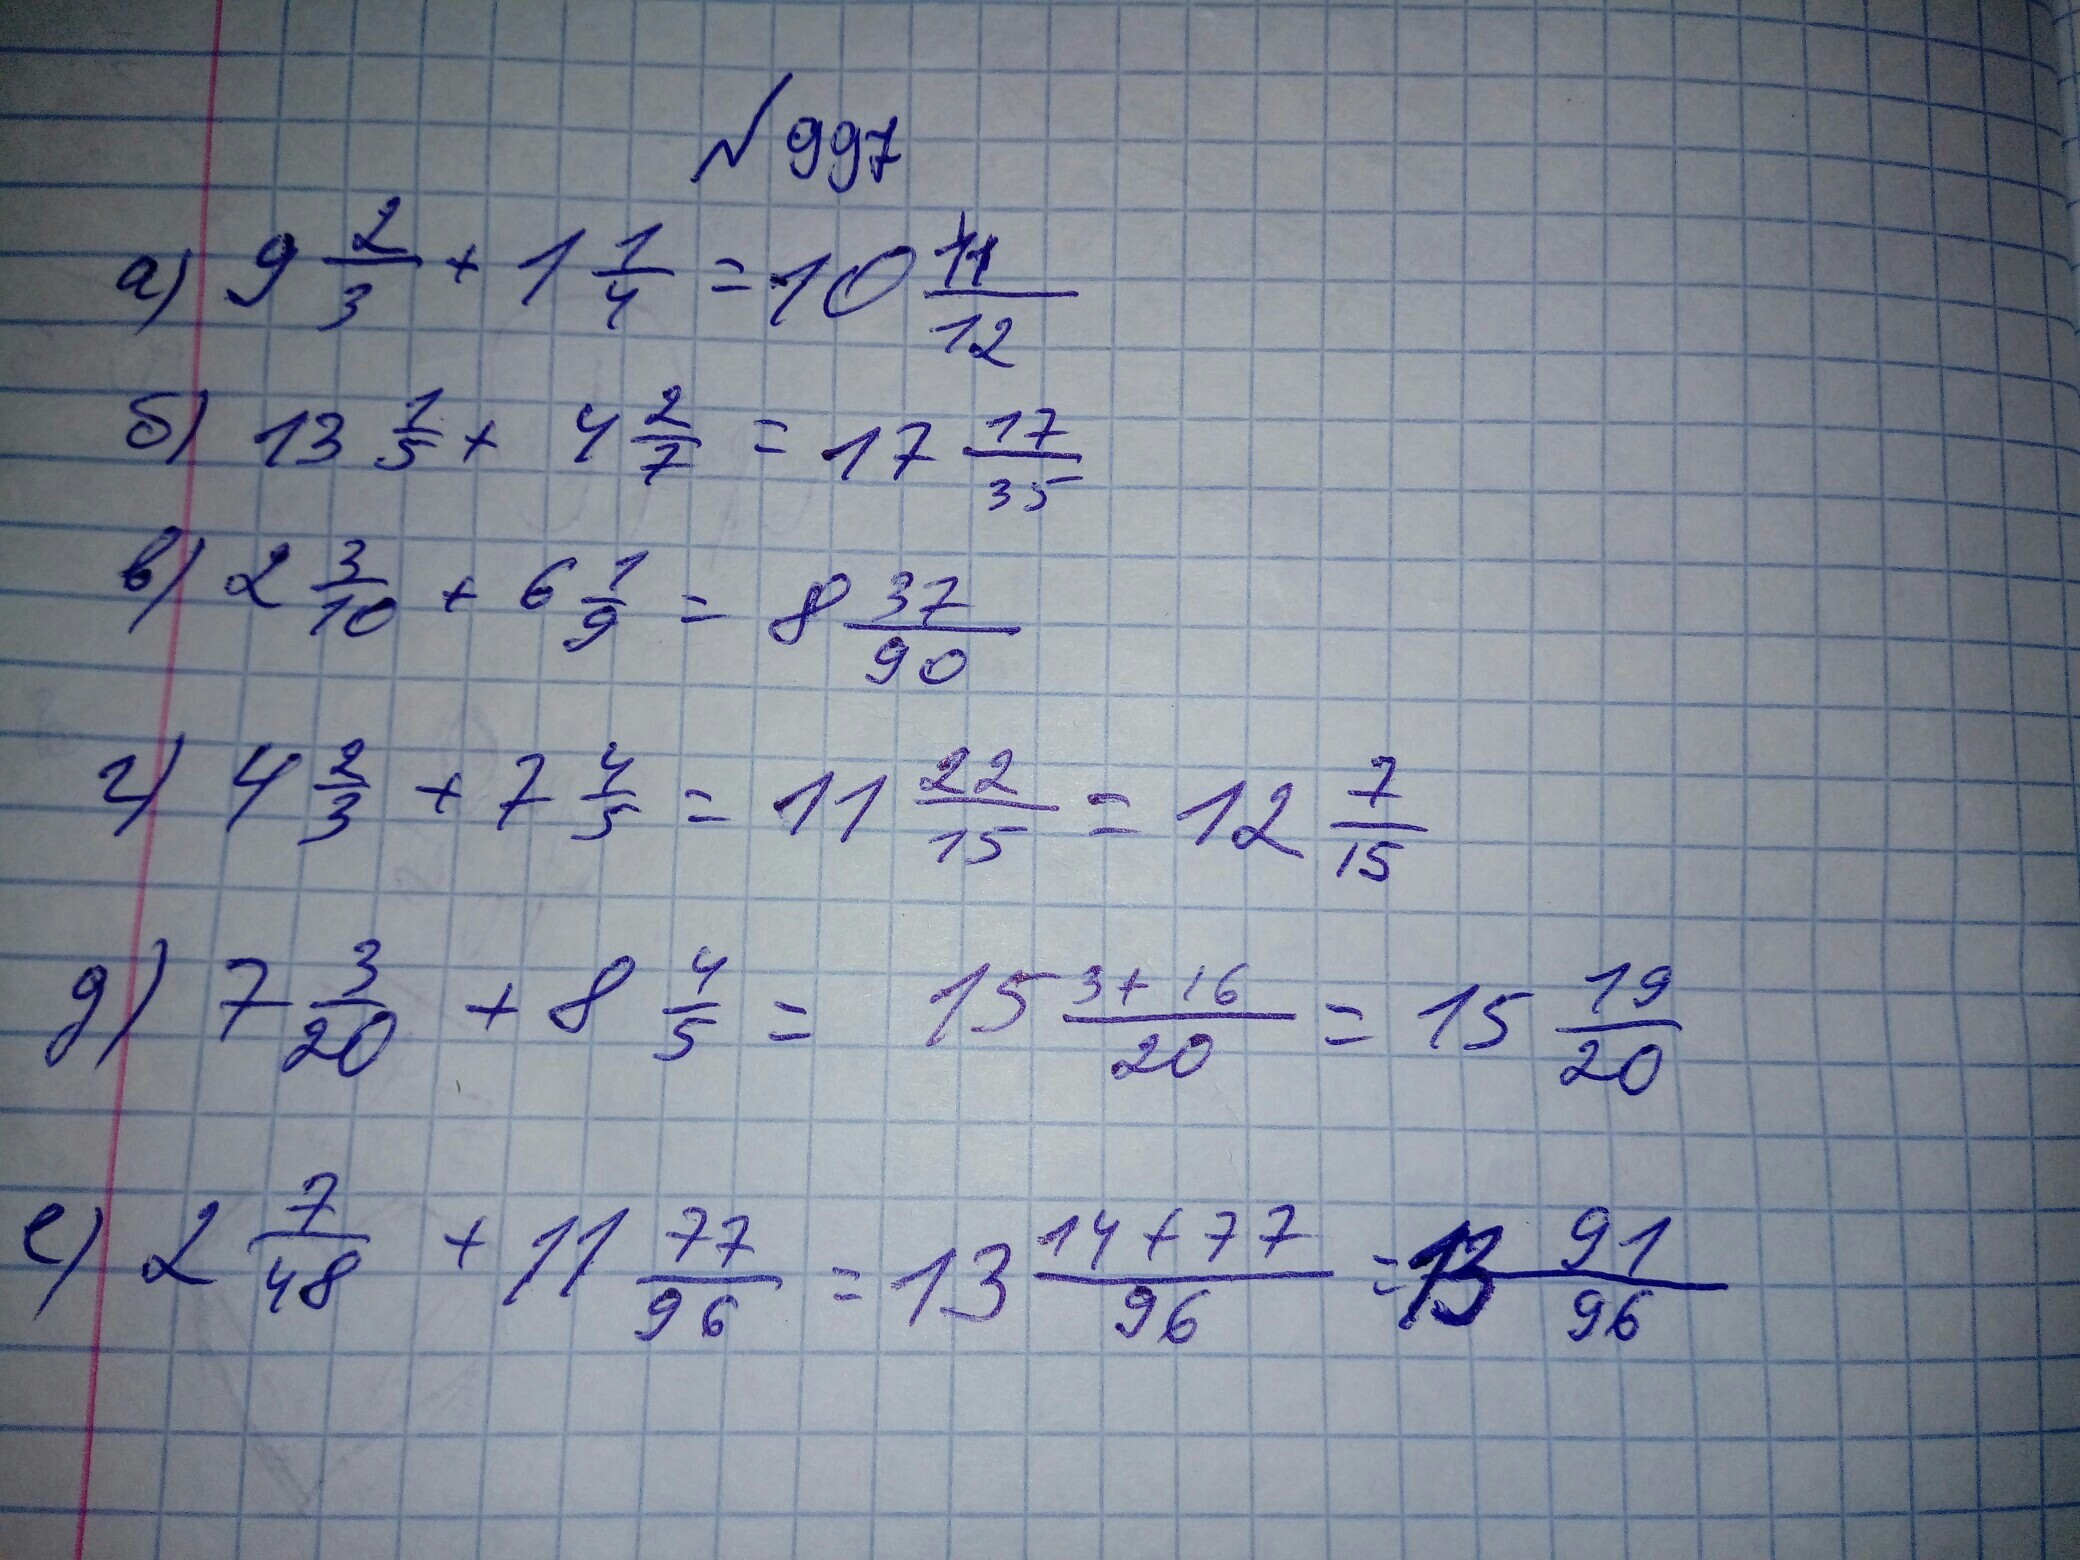 № 997
а) 9 2/3 + 1 1/4 = 10 11/12
б) 13 1/5 + 4 2/7 = 17 17/35
в) 2 3/10 + 6 1/9 = 8 37/90
г) 4 2/3 + 7 4/5 = 11 22/15 = 12 7/15
д) 7 3/20 + 8 4/5 = 15 3+16/20 = 15 19/20
е) 2 7/48 + 11 77/96 = 13 14+77/96 = 13 91/96